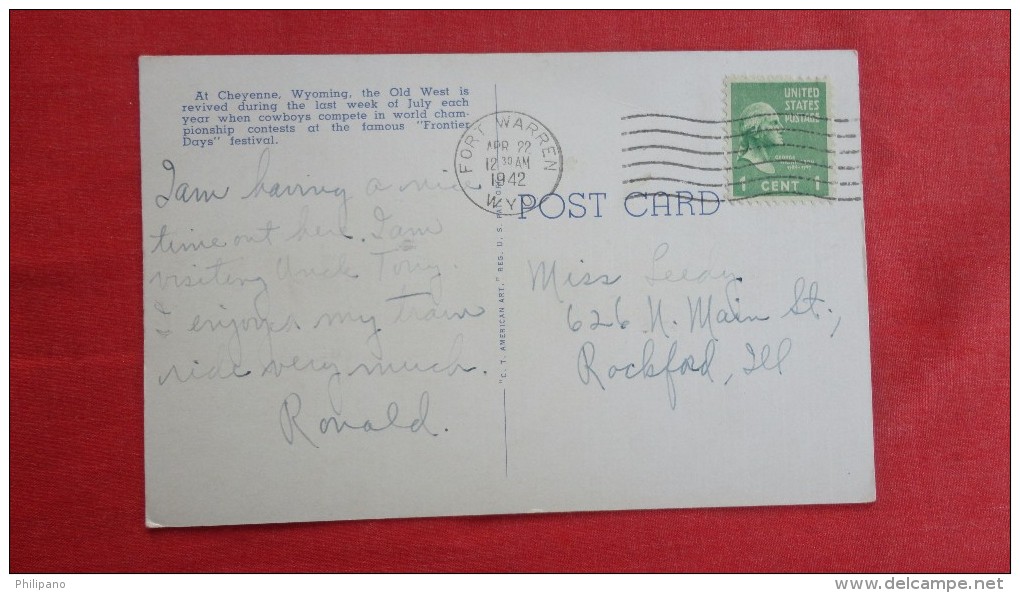 At Cheyenne, Wyoming, the Old West is
revived during the last week of July each
year when cowboys compete in world cham-
pionship contests at the famous "Frontier
Days" festival.
I am having a nice
time out here. I am
visiting Uncle Tony.
I enjoyed my train
ride very much.
Ronald.
"C. T. AMERICAN ART," REG. U. S. PAT. OFF.
FORT WARREN
APR 22
12 30 AM
1942
WYO
POST CARD
UNITED
STATES
POSTAGE
1 CENT 1
Miss Leedy
626 N. Main St.,
Rockford, Ill
Philipano
www.delcampe.net